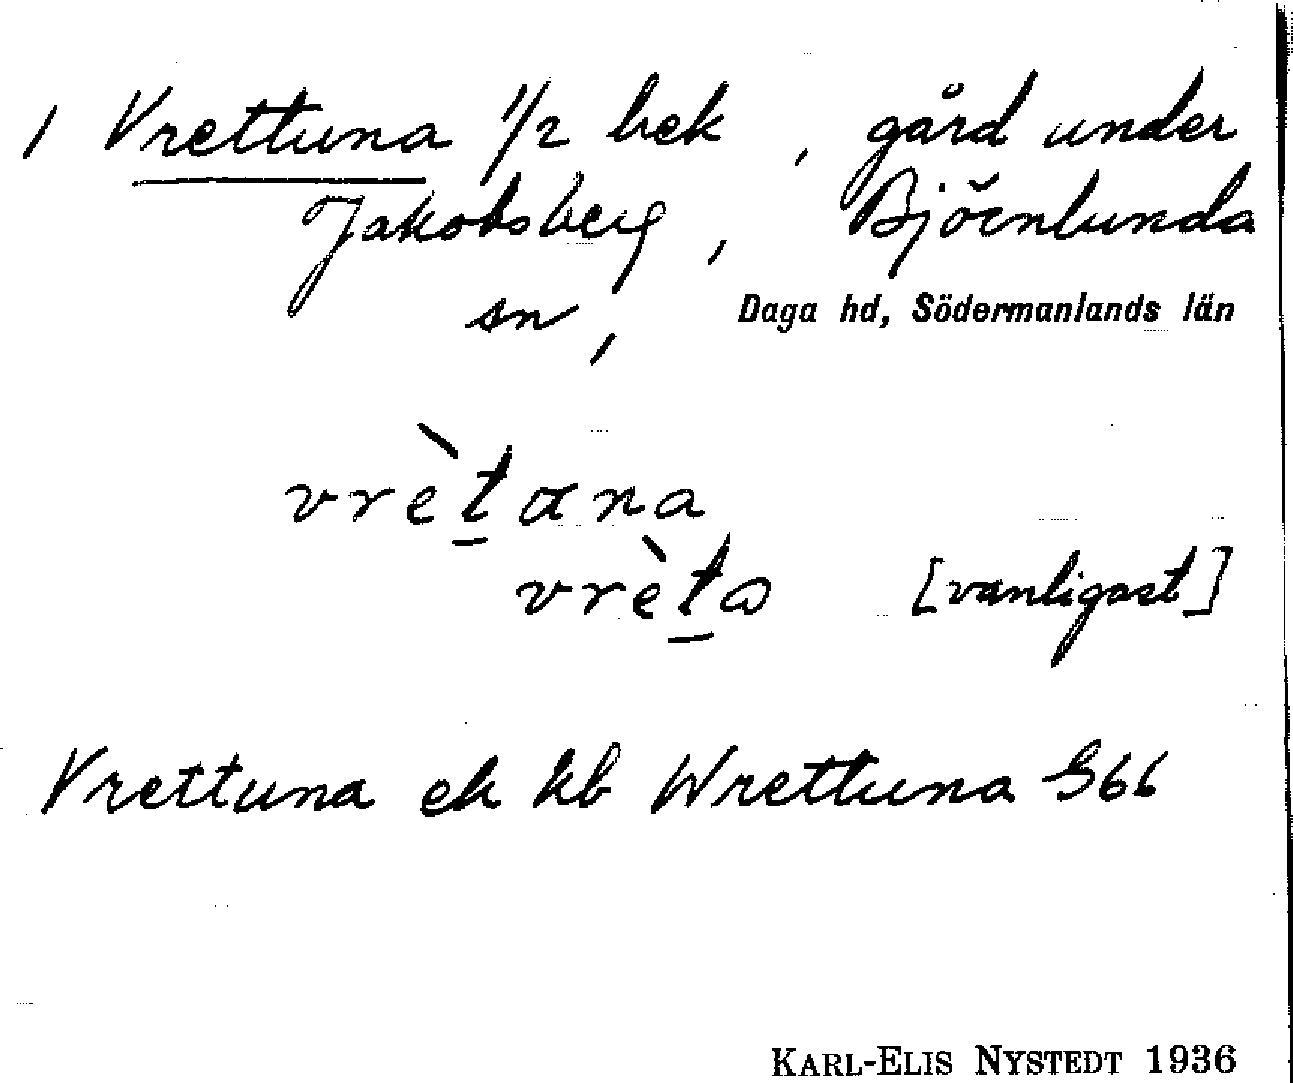 1 Vrettuna 1/2 bek, gård under
Jakobsberg, Björnlunda
sn, Daga hd, Södermanlands län
vrètana
vrèta [vanligast]
Vrettuna ek kb Wrettuna G66
KARL-ELIS NYSTEDT 1936